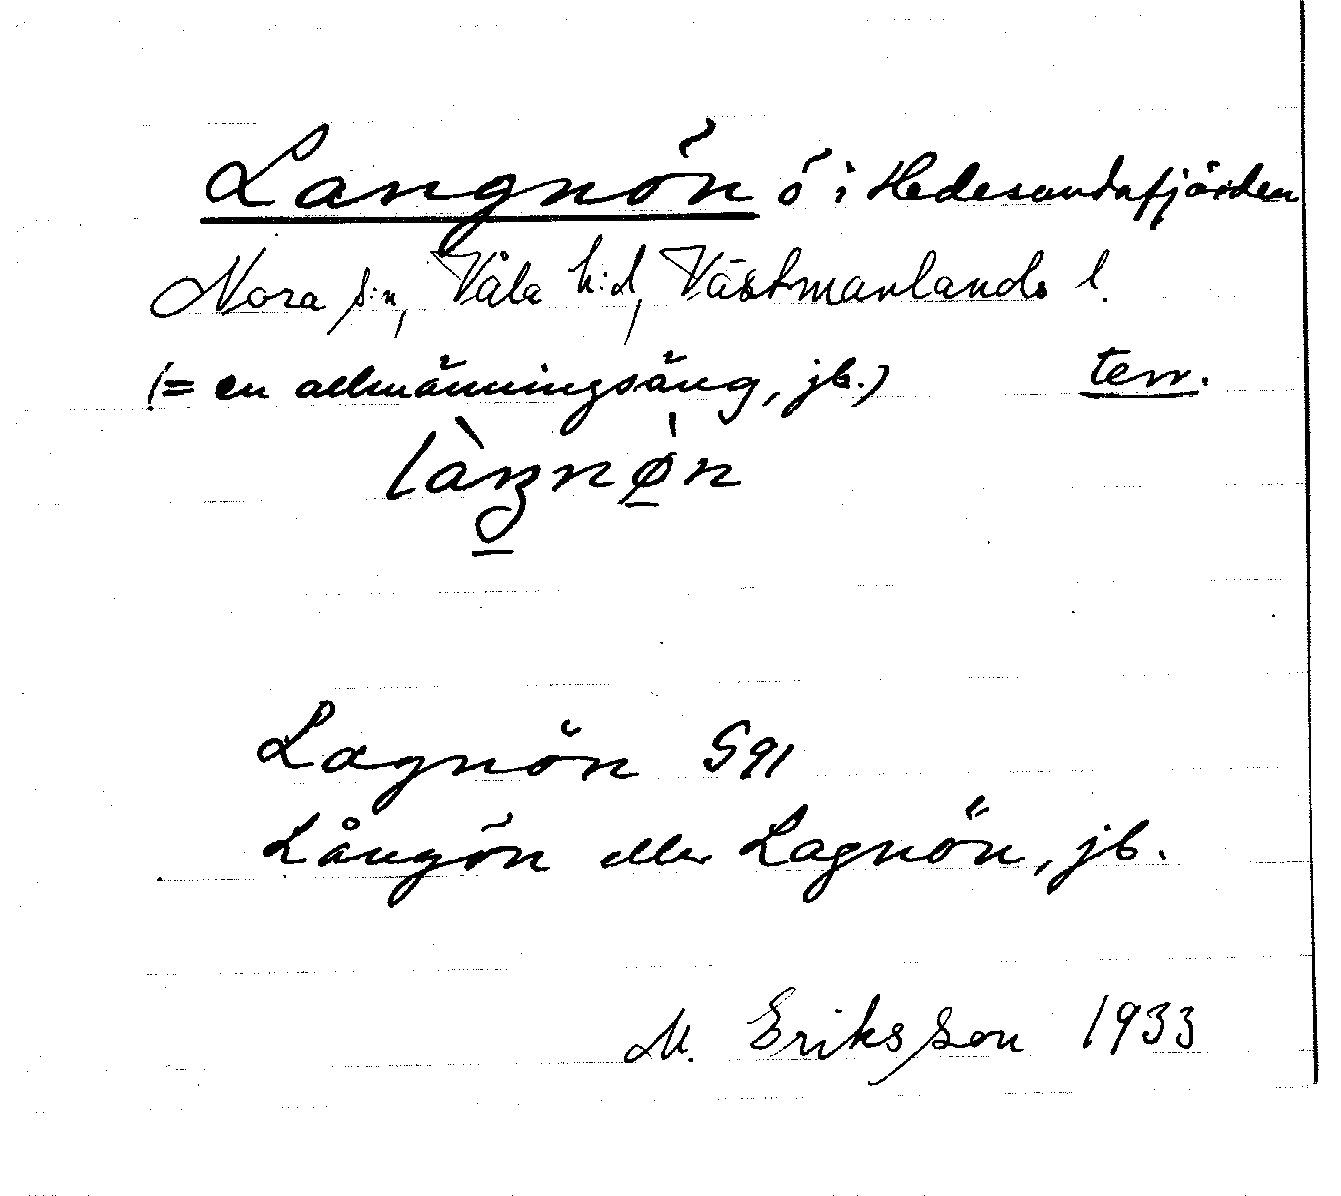 Langnön ö i Hedesundafjärden
Nora s:n, Våla h:d, Västmanlands l.
(= en allmänningsäng, jb.) terr.
làŋnø̀n
Lagnön S91
Långön eller Lagnön, jb.
M. Eriksson 1933